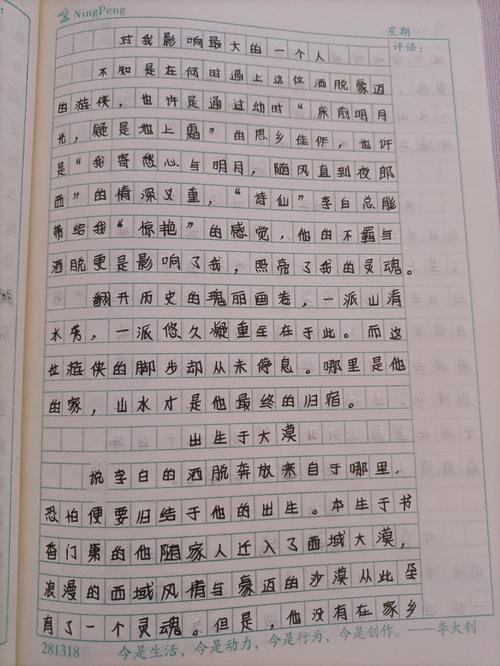 NingPeng
星期
评语：
对我影响最大的一个人
不知是在何时遇上这位洒脱豪迈
的游侠，也许是通过幼时“床前明月
光，疑是地上霜”的思乡佳作，也许
是“我寄愁心与明月，随风直到夜郎
西”的情深义重，“诗仙”李白总能
带给我“惊艳”的感觉，他的不羁与
洒脱更是影响了我，照亮了我的灵魂。
翻开历史的瑰丽画卷，一派山清
水秀，一派悠久凝重存在于此。而这
位游侠的脚步却从未停息。哪里是他
的家，山水才是他最终的归宿。
出生于大漠
说李白的洒脱奔放来自于哪里，
恐怕便要归结于他的出生。本生于书
香门第的他随家人迁入了西域大漠，
浪漫的西域风情与豪迈的沙漠从此孕
育了一个灵魂。但是，他没有在家乡
281318 今是生活，今是动力，今是行为，今是创作。——李大钊